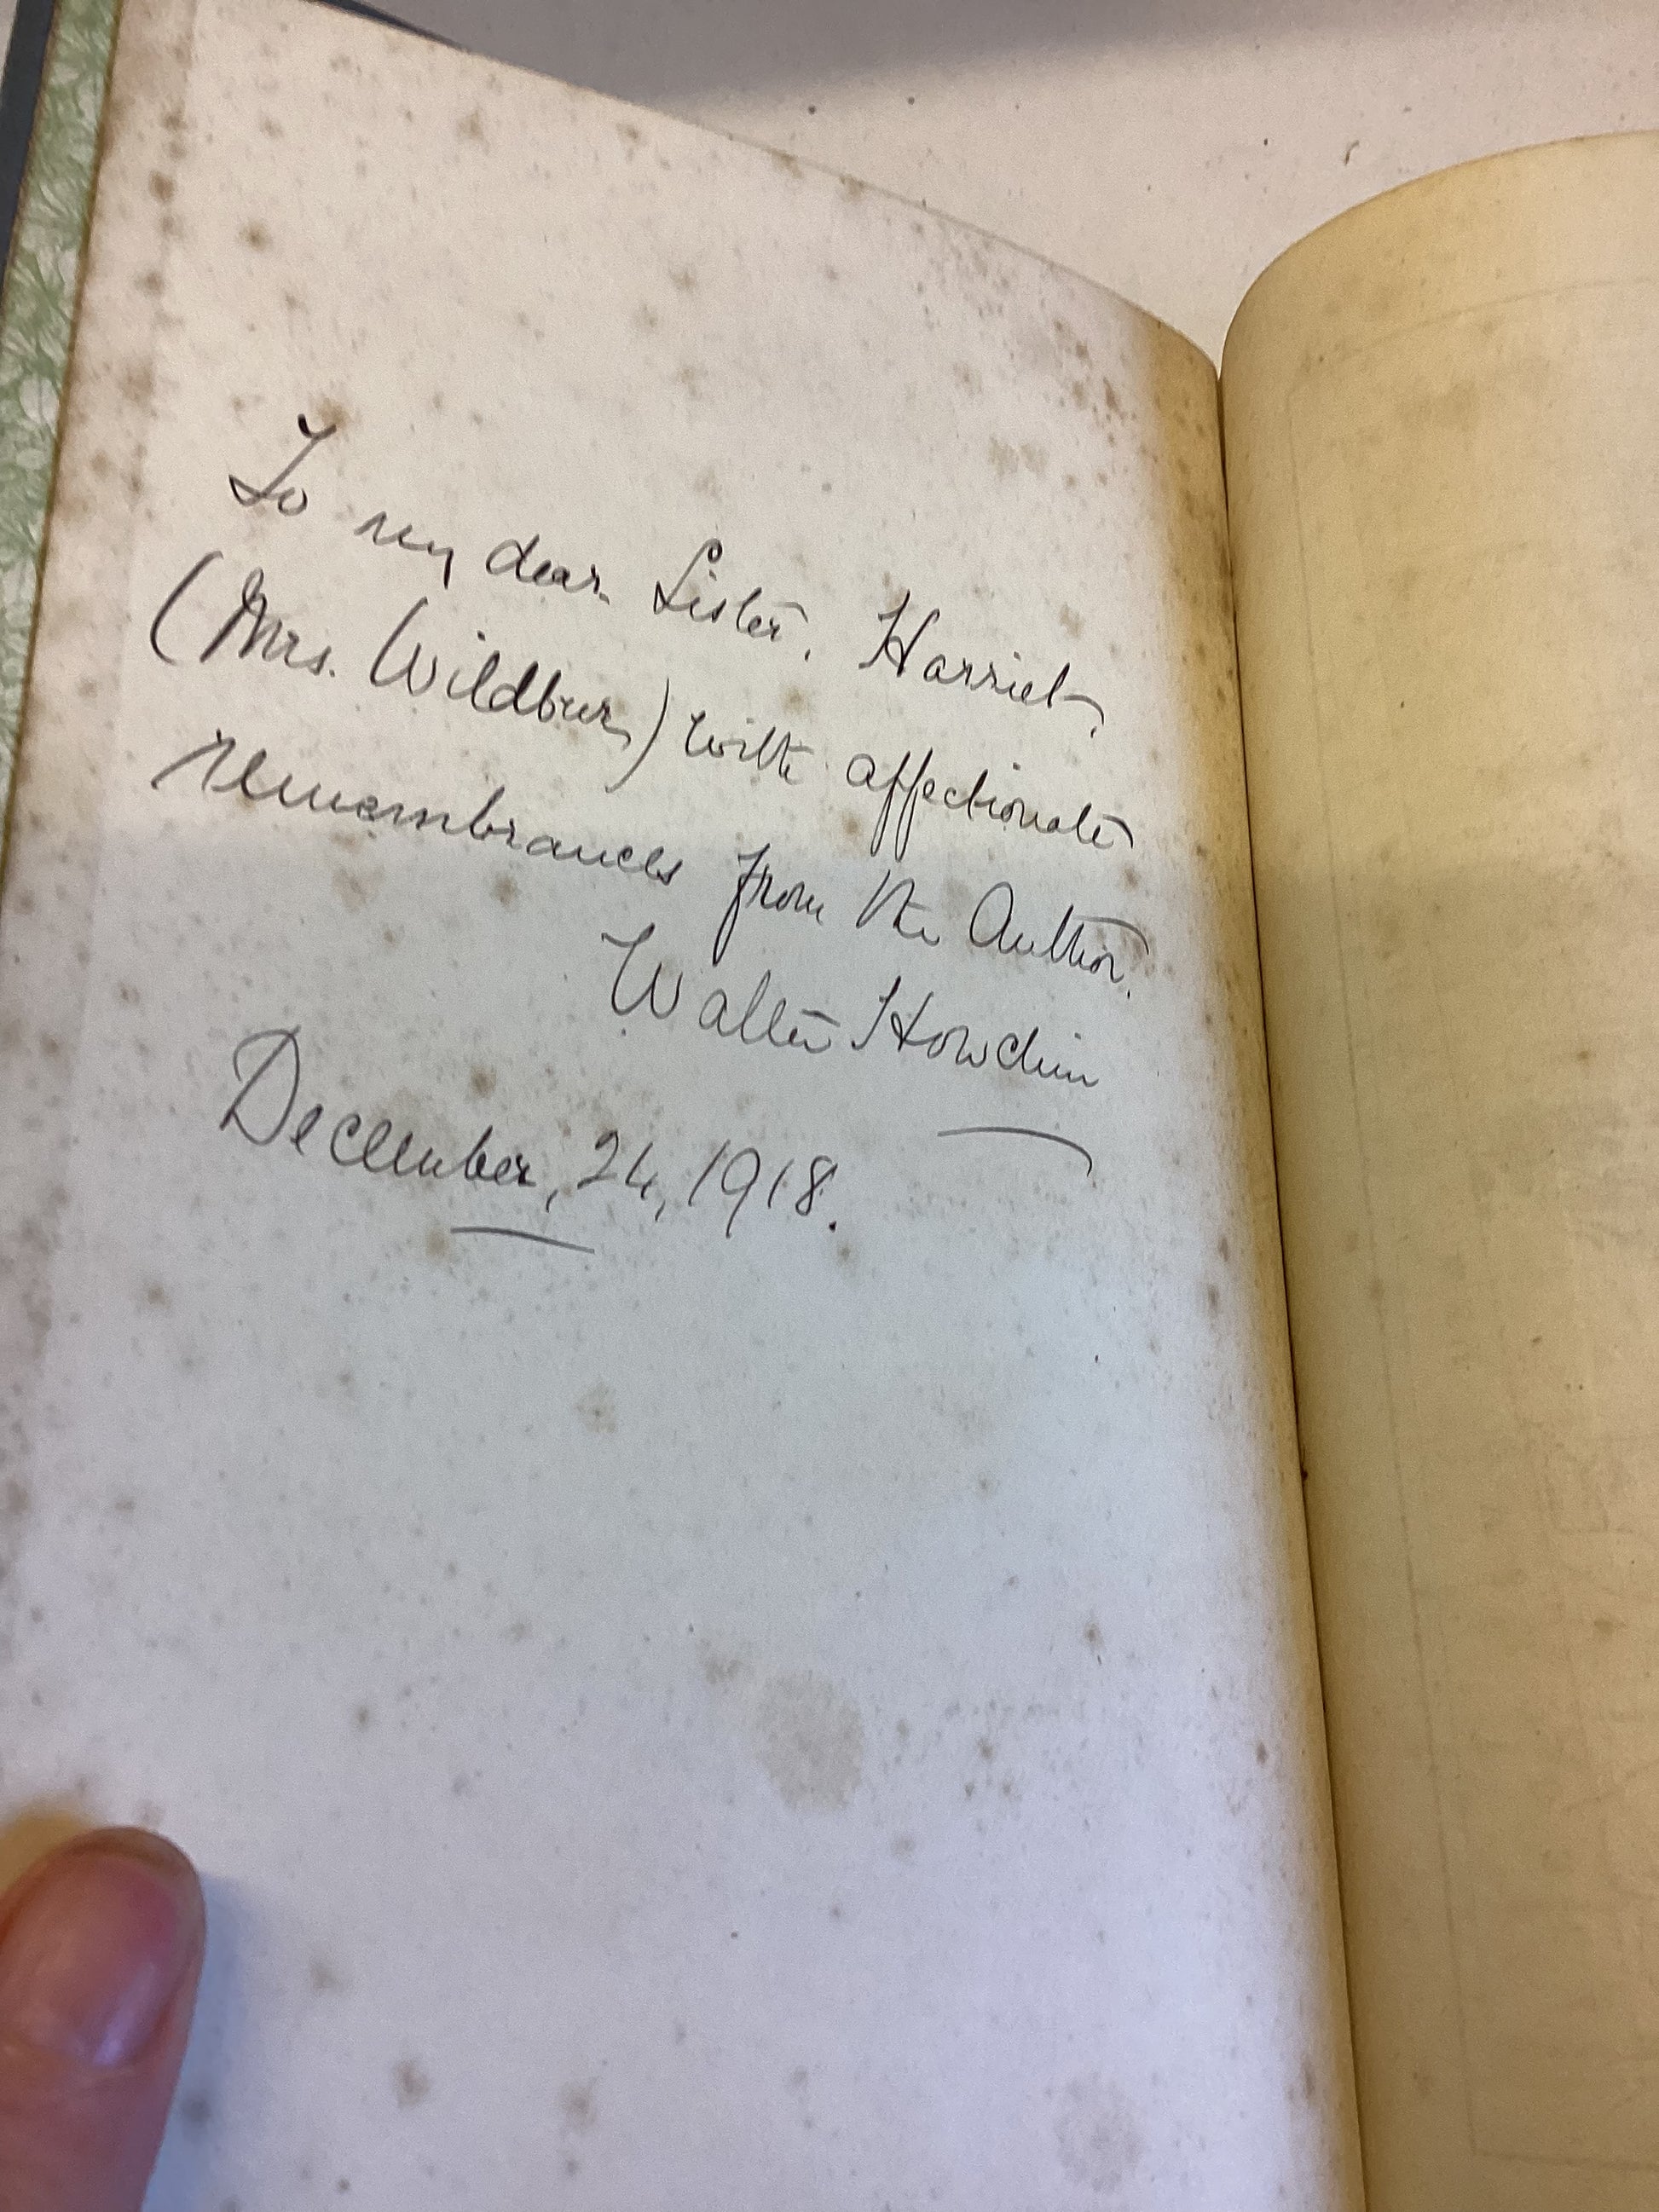 To my dear Sister, Harriet,
(Mrs. Wildbur) with affectionate
remembrances from the Author.
Walter Howchin
December, 24, 1918.